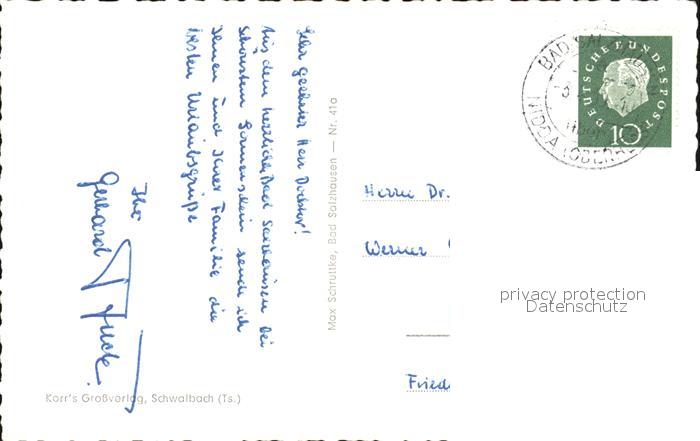 Sehr geehrter Herr Doktor!
Aus dem herrlichen Bad Salzhausen bei
schönstem Sonnenschein sende ich
Ihnen und Ihrer Familie die
besten Urlaubsgrüße
Ihr
Gerhard
Max Schruttke, Bad Salzhausen — Nr. 419
Korr's Großverlag, Schwalbach (Ts.)
Herrn Dr.
Werner
Fried
DEUTSCHE BUNDESPOST
10
BAD
NIDDA (OBERH
privacy protection
Datenschutz